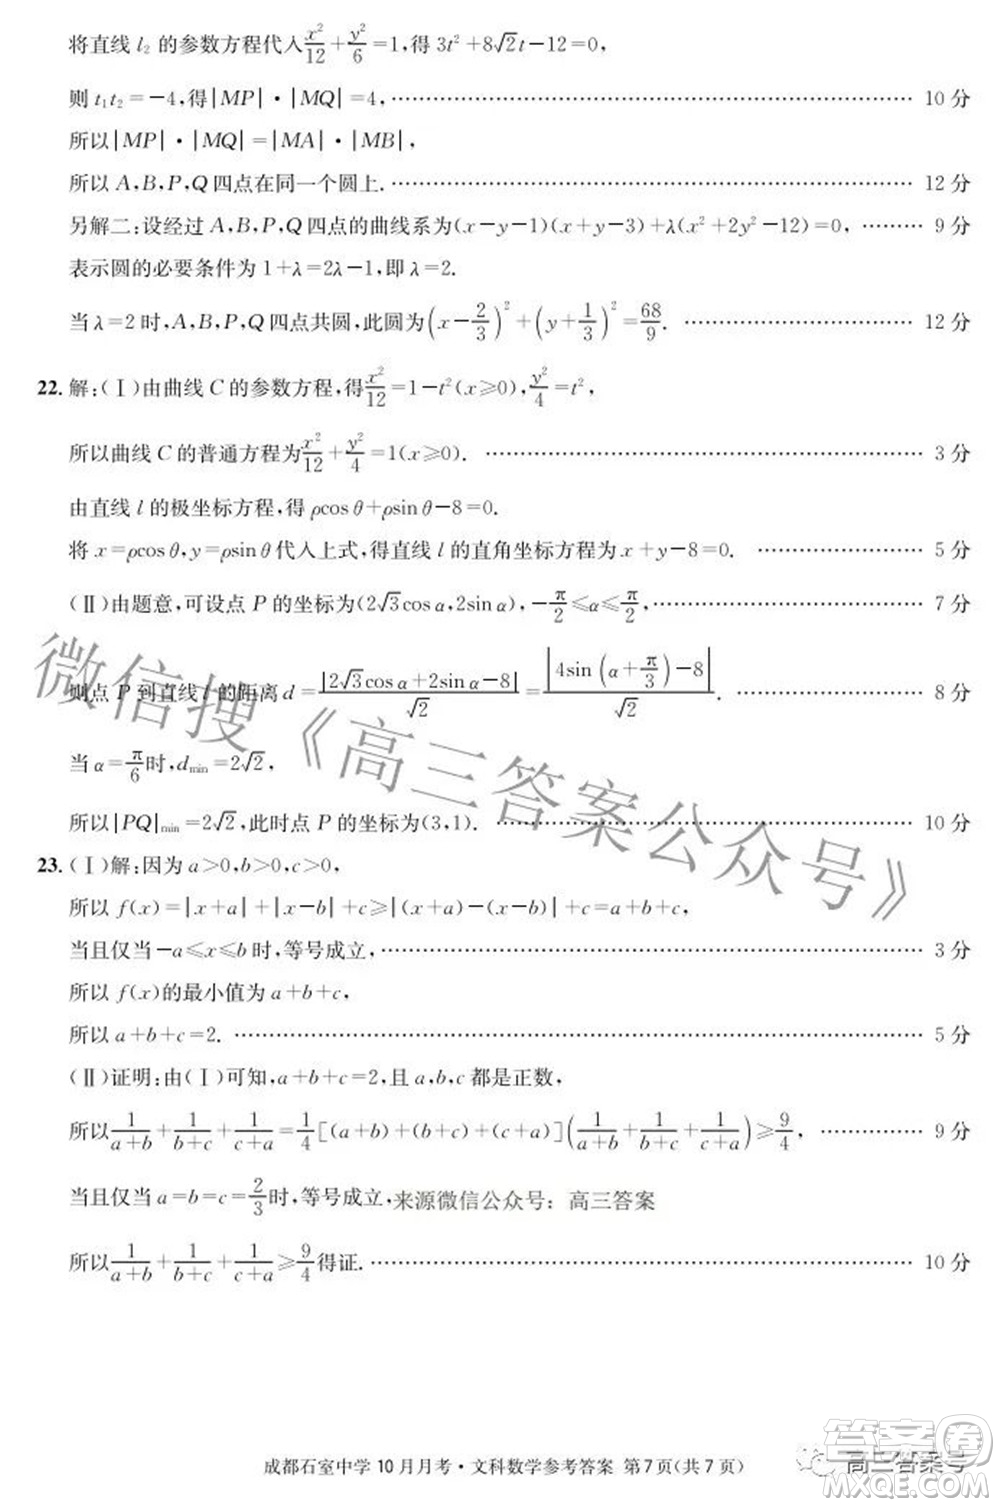 将直线 l₂ 的参数方程代入 x²/12 + y²/6 =1,得 3t²+8√2t−12=0,
则 t₁t₂=−4,得|MP|·|MQ|=4,…………10 分
所以|MP|·|MQ|=|MA|·|MB|,
所以 A,B,P,Q 四点在同一个圆上.…………12 分
另解二:设经过 A,B,P,Q 四点的曲线系为(x−y−1)(x+y−3)+λ(x²+2y²−12)=0, ………9 分
表示圆的必要条件为 1+λ=2λ−1,即 λ=2.
当 λ=2 时,A,B,P,Q 四点共圆,此圆为(x−2/3)²+(y+1/3)²=68/9. …………12 分
22. 解:(Ⅰ)由曲线 C 的参数方程,得 x²/12=1−t²(x⩾0), y²/4=t²,
所以曲线 C 的普通方程为 x²/12+y²/4=1(x⩾0). …………3 分
由直线 l 的极坐标方程,得 ρcos θ+ρsin θ−8=0.
将 x=ρcos θ,y=ρsin θ 代入上式,得直线 l 的直角坐标方程为 x+y−8=0. …………5 分
(Ⅱ)由题意,可设点 P 的坐标为(2√3cos α,2sin α),−π/2⩽α⩽π/2,…………7 分
则点 P 到直线 l 的距离 d=|2√3cos α+2sin α−8|/√2=|4sin(α+π/3)−8|/√2. …………8 分
当 α=π/6 时,d_min=2√2,
所以|PQ|_min=2√2,此时点 P 的坐标为(3,1). …………10 分
23. (Ⅰ)解:因为 a>0,b>0,c>0,
所以 f(x)=|x+a|+|x−b|+c⩾|(x+a)−(x−b)|+c=a+b+c,
当且仅当−a⩽x⩽b 时,等号成立,…………3 分
所以 f(x)的最小值为 a+b+c,
所以 a+b+c=2. …………5 分
(Ⅱ)证明:由(Ⅰ)可知,a+b+c=2,且 a,b,c 都是正数,
所以 1/(a+b)+1/(b+c)+1/(c+a)=1/4[(a+b)+(b+c)+(c+a)](1/(a+b)+1/(b+c)+1/(c+a))⩾9/4, …………9 分
当且仅当 a=b=c=2/3 时,等号成立,来源微信公众号：高三答案
所以 1/(a+b)+1/(b+c)+1/(c+a)⩾9/4 得证.…………10 分
微信搜《高三答案公众号》
成都石室中学 10 月月考·文科数学参考答案 第 7 页(共 7 页)
高三答案号
答案圈
MXQE.COM